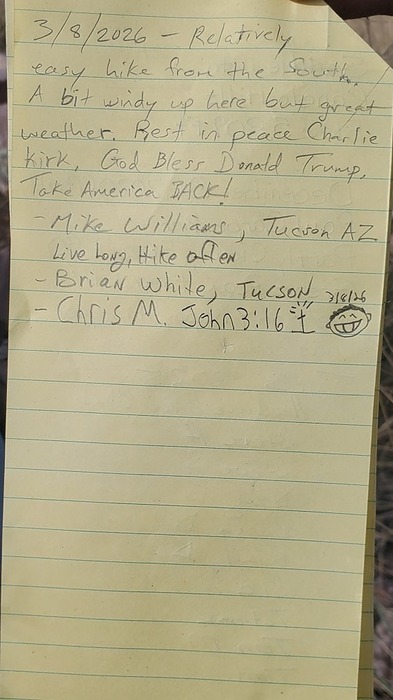 3/8/2026 - Relatively
easy hike from the South.
A bit windy up here but great
weather. Rest in peace Charlie
Kirk, God Bless Donald Trump,
Take America BACK!
- Mike Williams, Tucson AZ
Live Long, Hike often
- Brian White, TUCSON 3/8/26
- Chris M. John 3:16